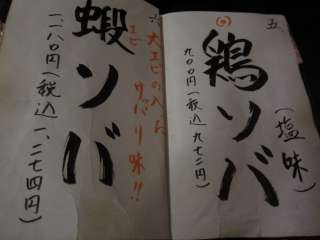 五、
鶏ソバ
(塩味)
九〇〇円(税込 九七二円)
六、
大エビの
サッパリ味!!
エビ
蝦ソバ
一、一八〇円(税込 一、二七四円)